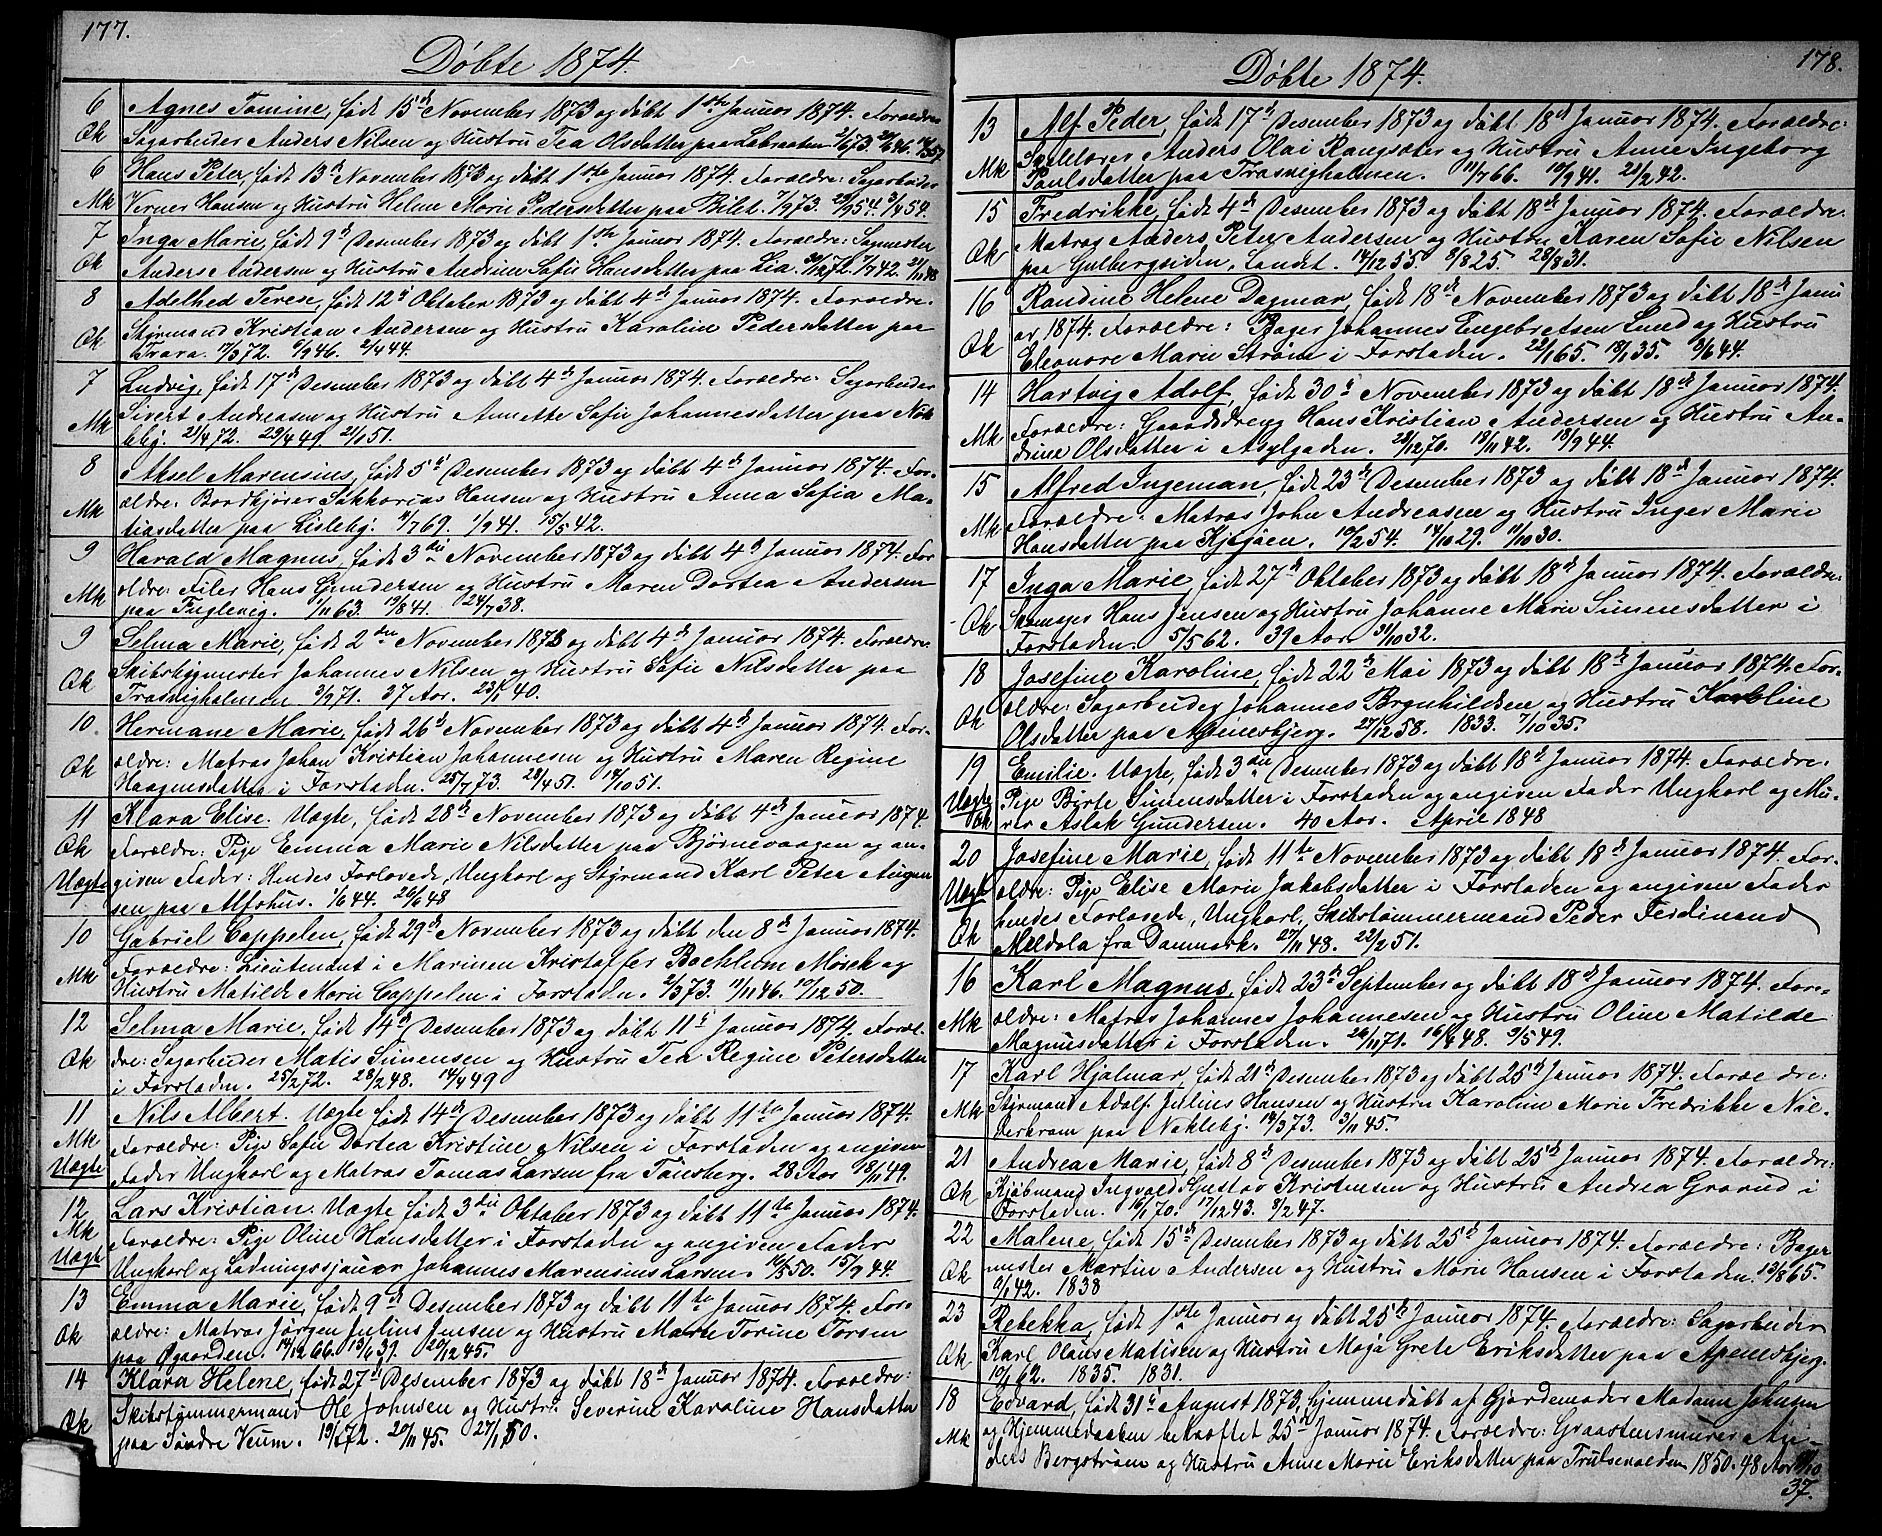 177.
Døbte 1874.
6 Agnes Tomine, født 15de November 1873 og døbt 1ste Januar 1874. Forældre
Qk Sagarbeider Anders Nilsen og Hustru Tea Olsdatter paa
6 Hans Peter, født 13de November 1873 og døbt 1ste Januar 1874. Forældre: Sagarbeider
Mk Verner Hansen og Hustru Helene Marie Pedersdatter paa Bilet. 7/9 73. 29/9 54. 3/4 54.
7 Inga Marie, født 9de Desember 1873 og døbt 1ste Januar 1874. Forældre: Sagmester
Qk Anders Andersen og Hustru Andrine Sofie Hansdatter paa Lia.
8 Adelhed Terese, født 12te Oktober 1873 og døbt 4de Januar 1874. Forældre.
Qk Styrmand Kristian Andersen og Hustru Karoline Pedersdatter paa
Trara. 17/3 72. 6/9 46. 2/4 44.
7 Ludvig, født 17de Desember 1873 og døbt 4de Januar 1874. Forældre: Sagarbeider
Mk Sivert Andreasen og Hustru Annette Sofie Johannesdatter paa Nøk
leby. 21/4 72. 29/4 49. 21/1 51.
8 Aksel Marensius, født 5te Desember 1873 og døbt 4de Januar 1874. For-
Mk ældre: Bordkjører Sakkarias Hansen og Hustru Anna Sofia Ma-
tiasdatter paa Lisleby. 11/7 69. 1/9 41. 15/5 42.
9 Harald Magnus, født 3die November 1873 og døbt 4de Januar 1874. For
Mk ældre: Filer Hans Gundersen og Hustru Maren Dortea Andersen
paa Fuglevig. 1/11 63. 19/8 41. 24/7 38.
9 Selma Marie, født 2den November 1873 og døbt 4de Januar 1874. Forældre.
Qk Skibsbygmester Johannes Nilsen og Hustru Sofie Nilsdatter paa
Trosvigholmen 3/9 71. 37 Aar. 23/1 40.
10. Hermane Marie, født 26de November 1873 og døbt 4de Januar 1874. For-
Qk ældre: Matros Johan Kristian Johannesen og Hustru Maren Regine
Haagensdatter i Forstaden. 25/7 73. 28/4 51. 18/10 51.
11 Klara Elise. Uægte, født 28de November 1873 og døbt 4de Januar 1874.
Qk Forældre: Pige Emma Marie Nilsdatter paa Bjørnevaagen og an-
Uægte given Fader: Hendes Forlovede, Ungkarl og Styrmand Karl Peter
sen, paa Alfohus. 1/6 44. 26/6 48
10 Gabriel Cappelen, født 29de November 1873 og døbt den 8de Januar 1874.
Mk Forældre: Lieutenant i Marinen Kristoffer Bochlum Mørch og
Hustru Matilde Marie Cappelen i Forstaden. 2/3 73. 11/11 46. 10/12 50.
12 Selma Marie, født 14de Desember 1873 og døbt 11te Januar 1874. Foræl-
Qk dre: Sagarbeider Matis Simensen og Hustru Tea Regine Petersdatter
i Forstaden. 25/2 72. 28/2 48. 14/4 49
11 Nils Albert. Uægte født 14de Desember 1873 og døbt 11te Januar 1874.
Mk Forældre: Pige Sofie Dortea Kristine Nilsen i Forstaden og angiven
Uægte Fader Ungkarl og Matros Tomas Larsen fra Tønsberg. 28 Aar 18/11 49.
12 Lars Kristian. Uægte født 3die Oktober 1873 og døbt 11te Januar 1874.
Mk Forældre: Pige Oline Hansdatter i Forstaden og angiven Fader
Uægte Ungkarl og Ladningssjauer Johannes Marensius Larsen. 10/5 50. 15/9 44.
13 Emma Marie, født 9de Desember 1873 og døbt 11te Januar 1874. For-
Qk ældre: Matros Jørgen Julius Jensen og Hustru Marte Torine Torsen
paa Øgaarden. 14/12 66. 13/6 39. 20/12 45.
14 Klara Helene, født 27de Desember 1873 og døbt 18de Januar 1874. Forældre:
Qk Skibstømmermand Ole Johnsen og Hustru Severine Karoline Hansdatter
paa Søndre Veum. 19/1 72. 20/11 45. 27/1 50.
178.
Døbte 1874.
13 Alf Peder, født 17de Desember 1873 og døbt 18de Januar 1874. Forældre:
Mk Anders Olai Rangsæter og Hustru Anne Ingeborg
Poulsdatter paa Trosvigholmen. 11/7 66. 10/9 41. 21/2 42.
15 Fredrikke, født 4de Desember 1873 og døbt 18de Januar 1874. Forældre:
Qk Matros Anders Peter Andersen og Hustru Karen Sofie Nilsen
paa Gulbergsiden, Landet. 14/12 55. 8/8 25. 28/8 31.
16 Randine Helene Dagmar, født 18de November 1873 og døbt 18de Janu
Qk ar, 1874. Forældre: Bager Johannes Engebretsen Lund og Hustru
Eleonore Marie Strøm i Forstaden. 22/1 65. 18/1 35. 3/6 44.
14 Hartvig Adolf, født 30te November 1873 og døbt 18de Januar 1874.
Mk Forældre: Gaardsdreng Hans Kristian Andersen og Hustru An-
drine Olsdatter i Asylgaden. 28/12 70. 18/11 42. 18/9 44.
15 Alfred Ingeman, født 23de Desember 1873 og døbt 18de Januar 1874.
Mk Forældre: Matros John Andreasen og Hustru Inger Marie
Hansdatter paa Kjøsøen. 10/2 54. 14/10 29. 11/10 30.
17 Inga Marie, født 27de Oktober 1873 og døbt 18de Januar 1874. Forældre:
Qk Skomager Hans Jensen og Hustru Johanne Marie Simensdatter i
Forstaden. 5/5 62. 39 Aar. 31/10 32.
18 Josefine Karoline, født 22de Mai 1873 og døbt 18de Januar 1874. For-
Qk ældre: Sagarbeider Johannes Brynhildsen og Hustru Karoline
Olsdatter paa Apenesbjerg. 27/12 58. 1833. 7/10 35.
19 Emilie. Uægte, født 3die Desember 1873 og døbt 18de Januar 1874. Forældre:
Uægte Pige Birte Simensdatter i Forstaden og angiven Fader Ungkarl og Mu-
Qk rer Aslak Gundersen. 40 Aar. April 1848
20 Josefine Marie, født 11te November 1873 og døbt 18de Januar 1874. For-
Uægte ældre: Pige Elise Marie Jakobsdatter i Forstaden og angiven Fader
hendes Forlovede, Ungkarl, Skibstømmermand Peder Ferdinand
Qk Meldola fra Danmark. 27/11 48. 22/2 51.
16 Karl Magnus, født 23de September og døbt 18de Januar 1874. For-
Mk ældre: Matros Johannes Johannesen og Hustru Oline Matilde
Magnusdatter i Forstaden. 26/11 71. 16/6 48. 9/5 49.
17 Karl Hjalmar, født 21de Desember 1873 og døbt 25de Januar 1874. Forældre:
Mk Styrmand Adolf Julius Hansen og Hustru Karoline Marie Fredrikke Nil-
derkram paa Nøkleby. 19/3 73. 3/11 45.
21 Andrea Marie, født 8de Desember 1873 og døbt 25de Januar 1874. Forældre:
Qk Kjøbmand Ingvald Gustav Kristensen og Hustru Andrea Grarud i
Forstaden. 16/1 70. 17/12 43. 9/2 47.
22 Malene, født 15de Desember 1873 og døbt 25de Januar 1874. Forældre: Bager
Qk mester Martin Andersen og Hustru Marie Hansen i Forstaden. 13/8 65.
9/1 42. 1838
23 Rebekka, født 1ste Januar og døbt 25de Januar 1874. Forældre: Sagarbeider
Qk Karl Olaus Matisen og Hustru Maja Grete Eriksdatter paa Apenesbjerg.
10/1 62. 1835. 1831.
18 Edvard, født 31te August 1873, hjemmedøbt af Gjordemoder Madam Johnsen
Mk og Hjemmedaaben bekræftet 25de Januar 1874. Forældre: Graastensmurer An-
ders Bergstrøm og Hustru Anne Marie Eriksdatter paa Trulsevolden 1850. 48 Aar.
37.